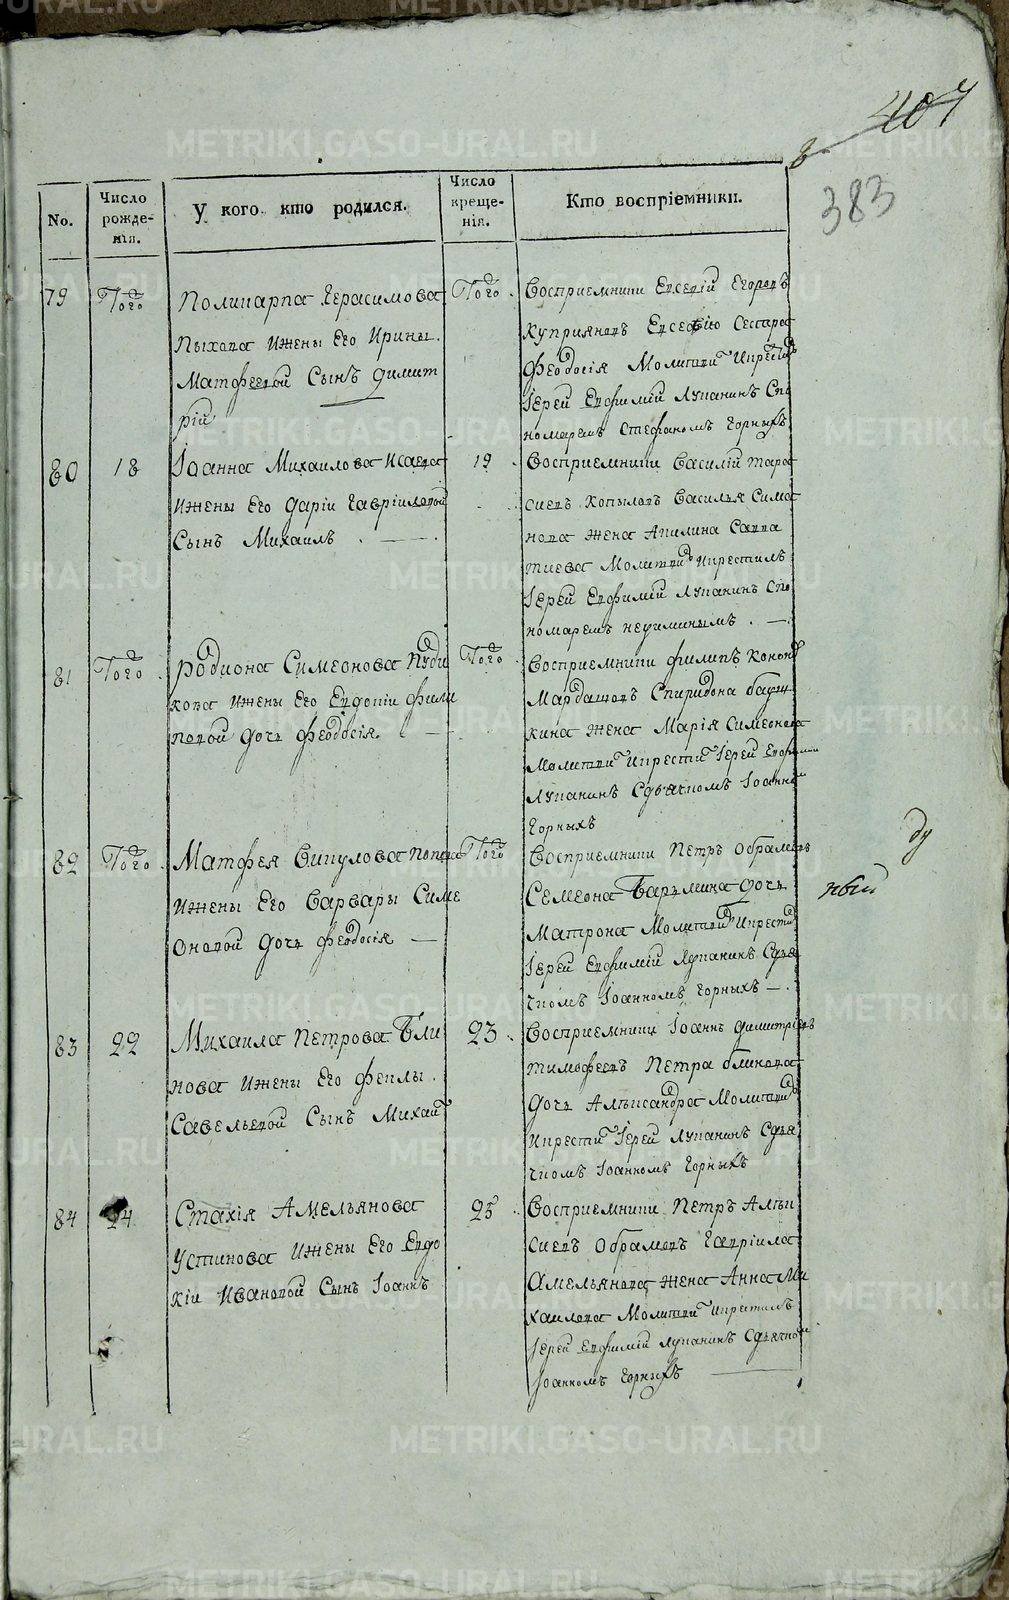 407
383
No.
Число рожденія.
У кого кто родился.
Число крещенія.
Кто воспріемники.
79
Того
Поликарпа Герасимова
Пыхова ижены Его Ирины
Матфеевой Сынъ Димит
рій
Того
Восприемники Евсевій Егоровъ
Куприяновъ Евсевію Сестра
Феодосія Молитви Икрестилъ
Іерей Евфимій Лупанинъ Спо
номаремъ Стефаномъ Горныхъ
80
18
Іоанна Михаилова Исаева
ижены Его Даріи Гавріиловой
Сынъ Михаилъ
19
Восприемники Василій Тара
сиевъ Копыловъ Василья Симо
нова жена Акилина Савва
тиева Молитви Икрестилъ
Іерей Евфимій Лупанинъ Спо
номаремъ
81
Того
Родиона Симеонова
кова ижены Его Евдокіи Фили
повой Дочь Феодосія
Того
Восприемники Филипъ Конон
Мардашовъ Спиридона
кина жена Марія Симеонова
Молитви Икрести Іерей Евфимій
Лупанинъ Сдьячкомъ Іоанном
Горныхъ
82
Того
Матфея Викулова
ижены Его Варвары Симе
оновой Дочь Феодосія
Того
Восприемники Петръ Обрамовъ
Семеона дочь
Матрона Молитви Икрести
Іерей Евфимій Лупанинъ Сдья
чкомъ Іоанномъ Горныхъ
ду
ный
83
22
Михаила Петрова Бли
нова ижены Его Феклы
Савельевой Сынъ Михаил
23
Восприемники Іоаннъ Димитріевъ
Тимофеевъ Петра Блинова
Дочь Алѣксандра Молитви
Икрести Іерей Лупанинъ Сдья
чкомъ Іоанномъ Горныхъ
84
24
Стахія Амельянова
Устинова ижены Его Евдо
кіи Ивановой Сынъ Іоаннъ
25
Восприемники Петръ Алѣк
сиевъ Обрамовъ Гавріила
Амельянова жена Анна Ми
хаилова Молитви Икрестилъ
Іерей Евфимій Лупанинъ Сдьячком
Іоанномъ Горныхъ
METRIKI.GASO-URAL.RU